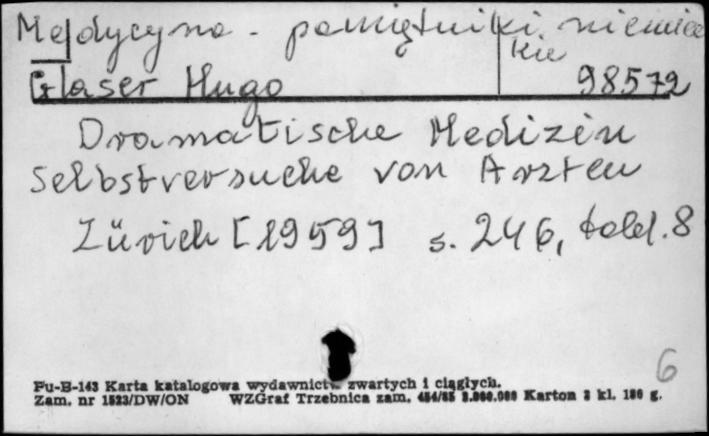 Medycyna - pamiętniki niemiec
kie
Glaser Hugo 98572
Dramatische Medizin
Selbstversuche von Arzten
Zürich [1959] s. 246, tabl. 8
6
Pu-B-143 Karta katalogowa wydawnictw zwartych i ciągłych.
Zam. nr 1523/DW/ON WZGraf Trzebnica zam. 454/85 3.000.000 Karton 3 kl. 180 g.